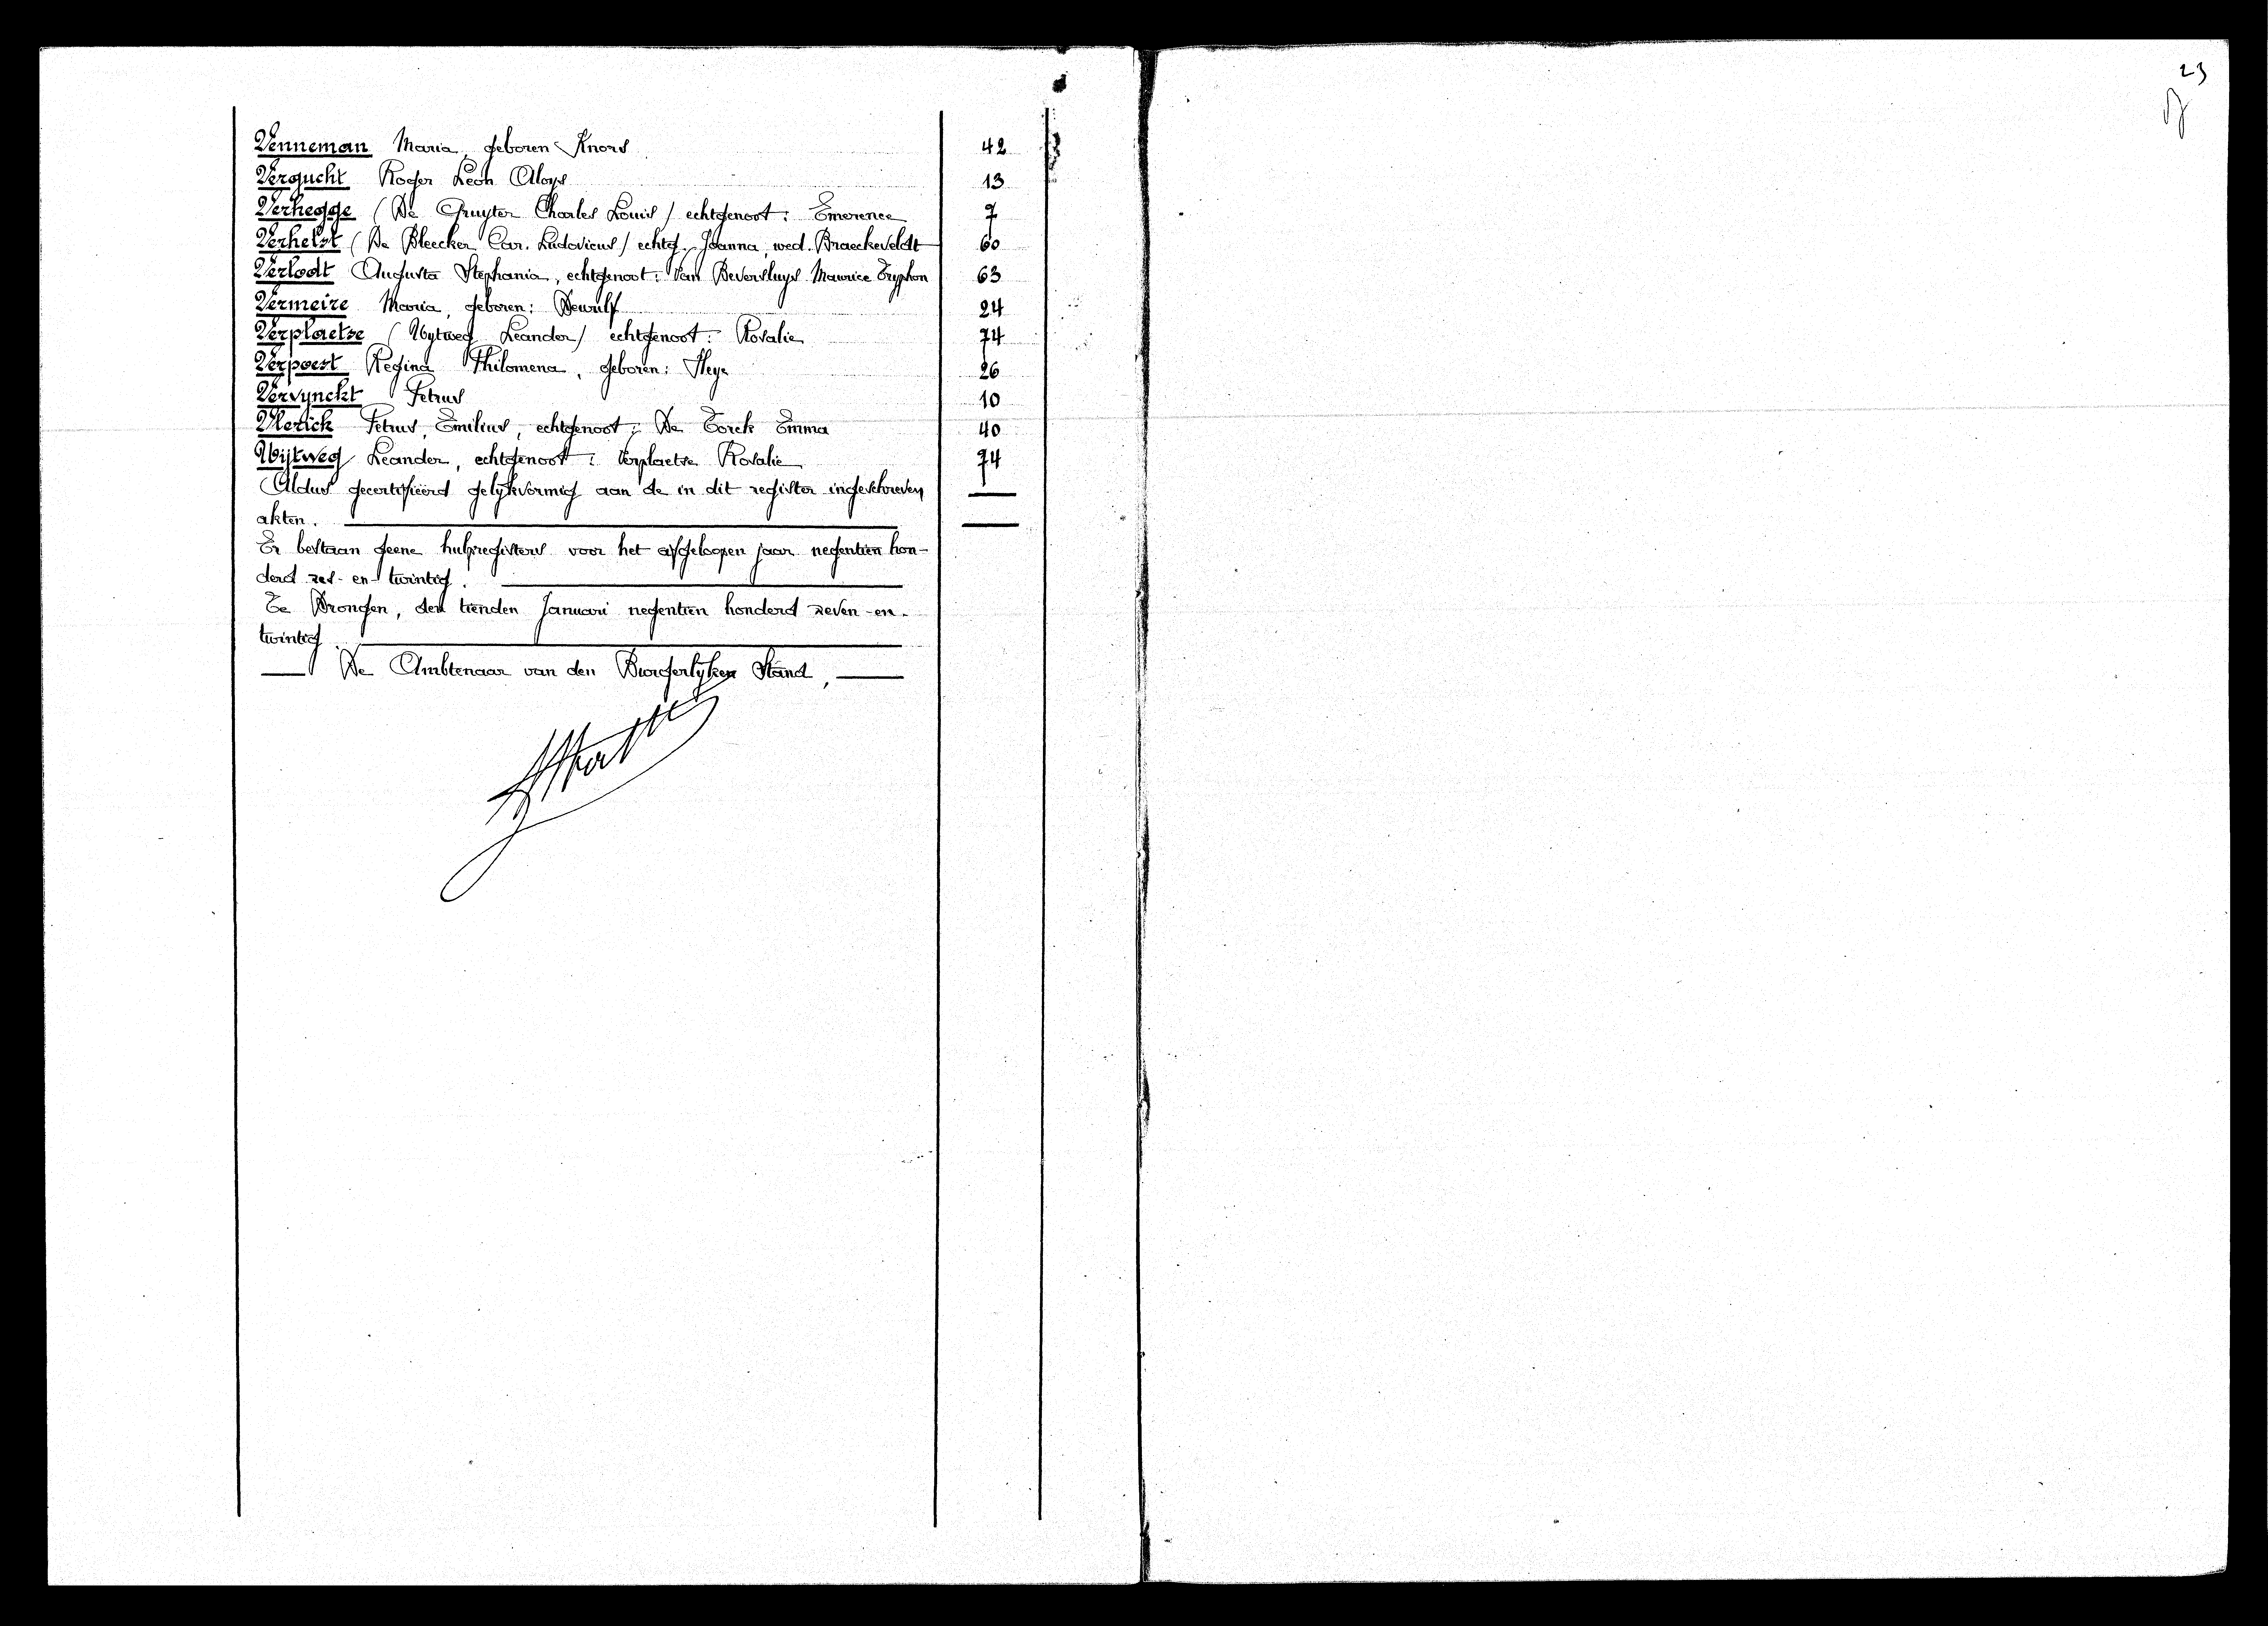 Venneman Maria, geboren Knors 42
Vergucht Roger Leon Aloys 13
Verhegge (De Gruyter Charles Louis) echtgenoot: Emerence 7
Verhelst (De Bleecker Car. Ludovicus) echtg. Joanna, wed. Braeckeveldt 60
Verlodt Augusta Stephania, echtgenoot: Van Beversluys Maurice Tryphon 63
Vermeire Maria, geboren: Dewulf 24
Verplaetse (Uytweg Leander) echtgenoot: Rosalie 74
Verpoest Regina Philomena, geboren: Heye 26
Vervynckt Petrus 10
Vlerick Petrus, Emilius, echtgenoot: De Torck Emma 40
Uijtweg Leander, echtgenoot: Verplaetse Rosalie 74
Aldus gecertifieërd gelijkvormig aan de in dit register ingeschreven
akten.
Er bestaan geene hulpregisters voor het afgeloopen jaar negentien hon-
derd zes-en-twintig.
Te Drongen, den tienden Januari negentien honderd zeven-en-
twintig.
De Ambtenaar van den Burgerlijken Stand,
23